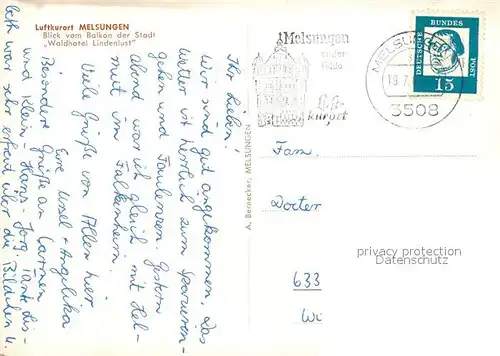 Luftkurort MELSUNGEN
Blick vom Balkon der Stadt
"Waldhotel Lindenlust"
Ihr Lieben!
Wir sind gut angekommen, Das
Wetter ist herrlich zum Spazieren-
gehen und Faulenzen. Gestern
abend war ich gleich mit Hel-
mut im Falkenheim.
Viele Grüße von Allen hier
Eure Ursel + Angelika
Besondere Grüße an Carmen
und Klein-Hans-Jörg. Tante Lis-
beth war sehr erfreut über die Bildchen u.
A. Bernecker, MELSUNGEN
Melsungen
an der
Fulda
Luft-
kurort
MELSUNGEN
3508
DEUTSCHE BUNDESPOST
15
Fam.
Docter
633
privacy protection
Datenschutz